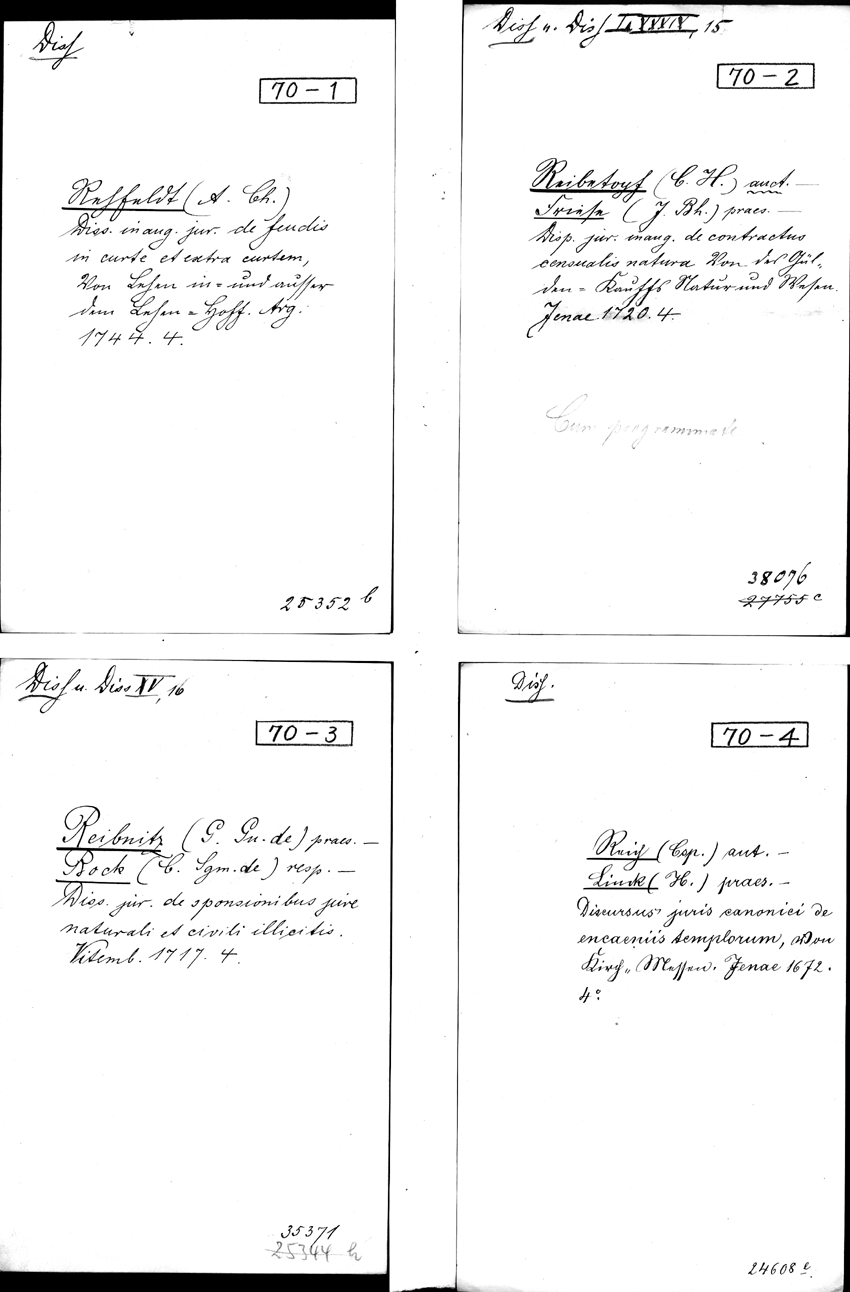 Diss
70-1
Rehfeldt (A. Ch.)
Diss. inaug. jur. de feudis
in curte et extra curtem,
Von Lehen in= und ausser
dem Lehen=Hoff. Arg.
1744. 4.
25352 b
Diss u. Diss LXXXIX, 15
70-2
Reibetopf (C. H.) auct. —
Friese (J. Bh.) praes. —
Disp. jur. inaug. de contractus
censualis natura Von des Gül-
den=Kauffs Natur und Wesen.
Jenae. 1720. 4.
Cum programmate
38076
27755 c
Diss u. Diss XV, 16
70-3
Reibnitz (G. Gu. de) praes. —
Bock (C. Sgm. de) resp. —
Diss. jur. de sponsionibus jure
naturali et civili illicitis.
Vitemb. 1717. 4.
35371
25344 h
Diss.
70-4
Reich (Csp.) aut. —
Linck (H.) praes. —
Discursus juris canonici de
encaeniis templorum, Von
Kirch„Messen. Jenae 1672.
4°.
24608 e